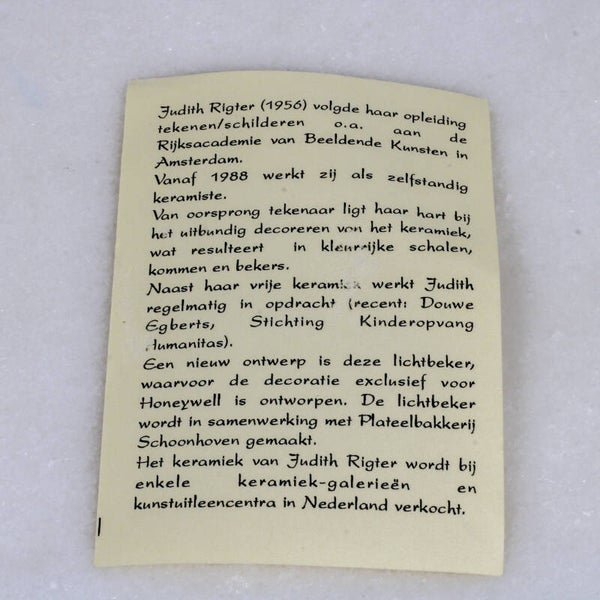 Judith Rigter (1956) volgde haar opleiding
tekenen/schilderen o.a. aan de
Rijksacademie van Beeldende Kunsten in
Amsterdam.
Vanaf 1988 werkt zij als zelfstandig
keramiste.
Van oorsprong tekenaar ligt haar hart bij
het uitbundig decoreren van het keramiek,
wat resulteert in kleurrijke schalen,
kommen en bekers.
Naast haar vrije keramiek werkt Judith
regelmatig in opdracht (recent: Douwe
Egberts, Stichting Kinderopvang
Humanitas).
Een nieuw ontwerp is deze lichtbeker,
waarvoor de decoratie exclusief voor
Honeywell is ontworpen. De lichtbeker
wordt in samenwerking met Plateelbakkerij
Schoonhoven gemaakt.
Het keramiek van Judith Rigter wordt bij
enkele keramiek-galerieën en
kunstuitleencentra in Nederland verkocht.